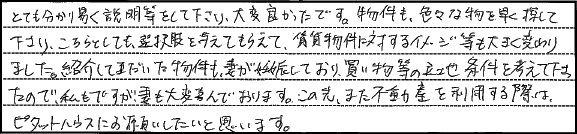 とても分かり易く説明等をして下さり、大変良かったです。物件も、色々な物を早く探して
下さり、こちらとしても選択肢を与えてもらえて、賃貸物件に対するイメージ等も大きく変わり
ました。紹介して頂いた物件も、妻が妊娠しており、買い物等の立地条件を考えて下さっ
たので私もですが、妻も大変喜んでおります。この先、また不動産を利用する際は、
ピタットハウスにお願いしたいと思います。